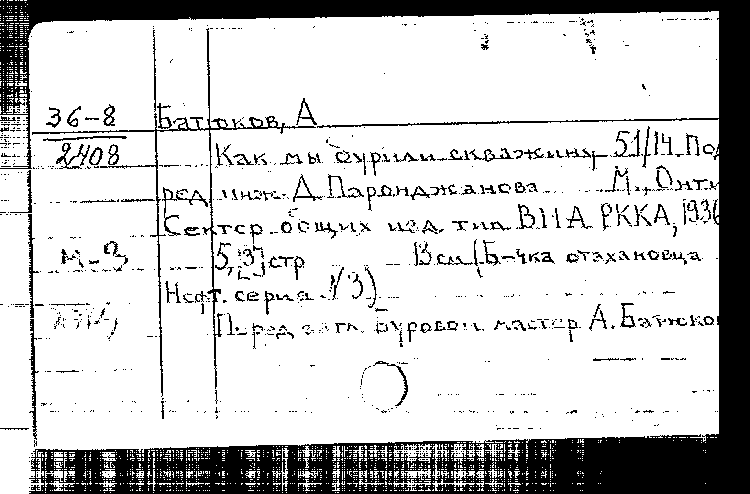 36-8 Батюков, А
2408 Как мы бурили скважину 51/14 Под
ред инж. Д Паронджанова М., Онти
Сектор общих изд тип ВИА РККА, 1936
м-З 5,[3] стр 13 см (Б-чка стахановца
Нефт. серия 1/3)
Перед загл. Буровой мастер А. Батюков